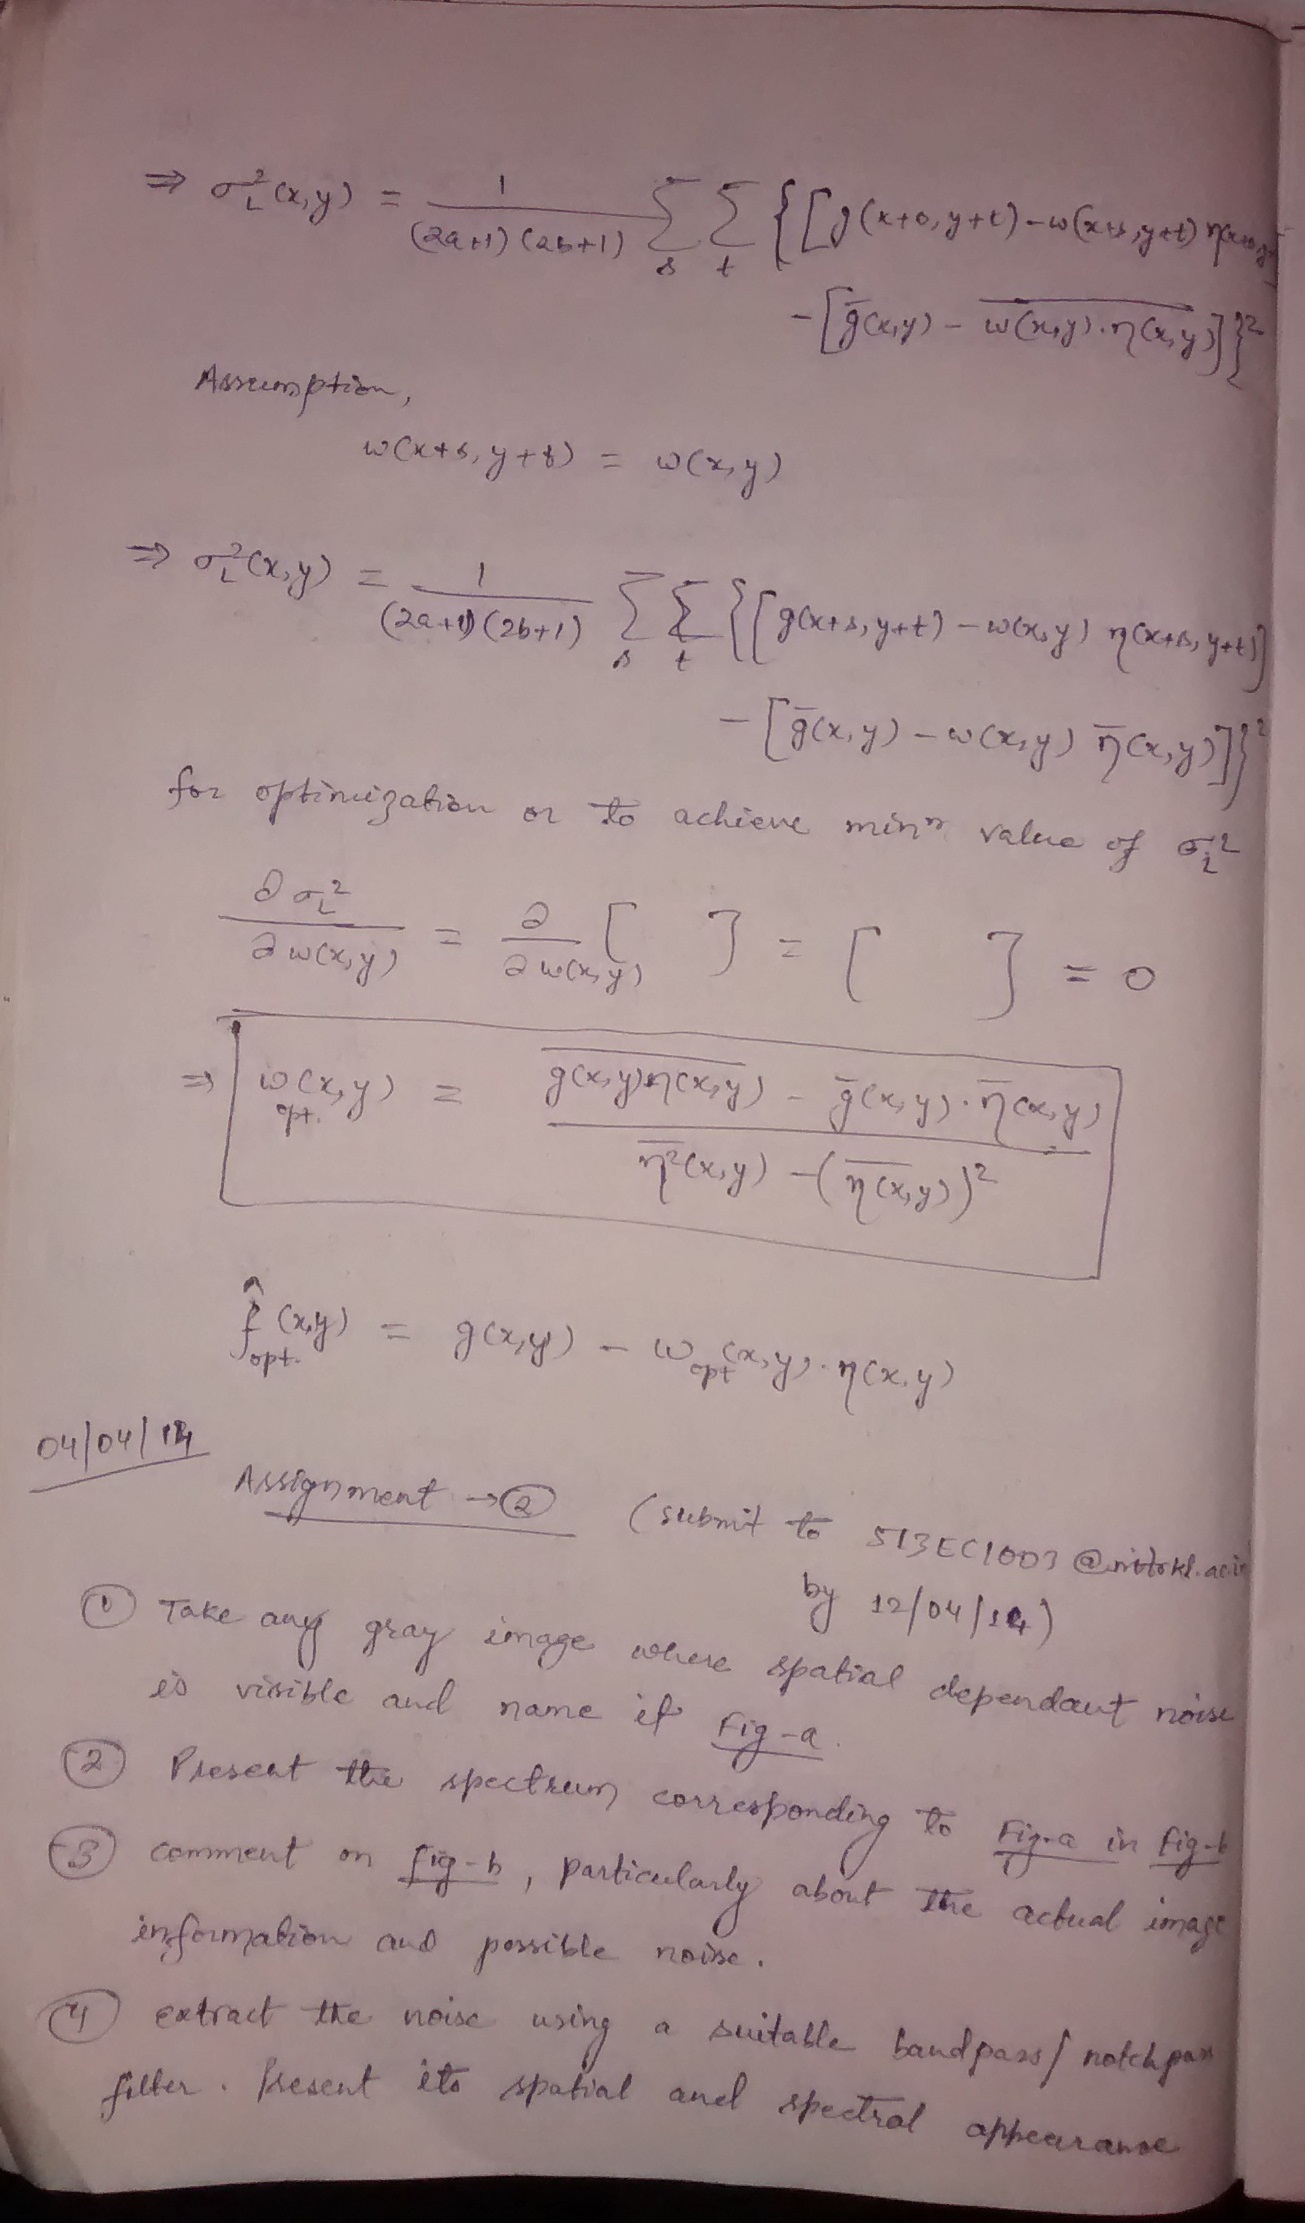 ⇒ σ_L²(x,y) = 1/((2a+1)(2b+1)) Σ_s Σ_t {[g(x+s,y+t) - w(x+s,y+t)η(x+s,y+t)]
- [g̅(x,y) - \overline{w(x,y)·η(x,y)}]}²
Assumption,
w(x+s, y+t) = w(x,y)
⇒ σ_L²(x,y) = 1/((2a+1)(2b+1)) Σ_s Σ_t {[g(x+s,y+t) - w(x,y) η(x+s,y+t)]
- [g̅(x,y) - w(x,y) η̅(x,y)]}²
for optimization or to achieve min value of σ_L²
∂σ_L²/∂w(x,y) = ∂/∂w(x,y) [ ] = [ ] = 0
⇒ w_opt.(x,y) = (\overline{g(x,y)η(x,y)} - g̅(x,y)·η̅(x,y)) / (\overline{η²}(x,y) - (\overline{η(x,y)})²
f̂_opt.(x,y) = g(x,y) - w_opt(x,y)·η(x,y)
04/04/14
Assignment → ② (submit to 513EC1007@nitrkl.ac.in
by 12/04/14)
① Take any gray image where spatial dependant noise
is visible and name it Fig-a.
② Present the spectrum corresponding to Fig-a in Fig-b
③ comment on Fig-b, particularly about the actual image
information and possible noise.
④ extract the noise using a suitable bandpass/notchpass
filter. Present its spatial and spectral appearance